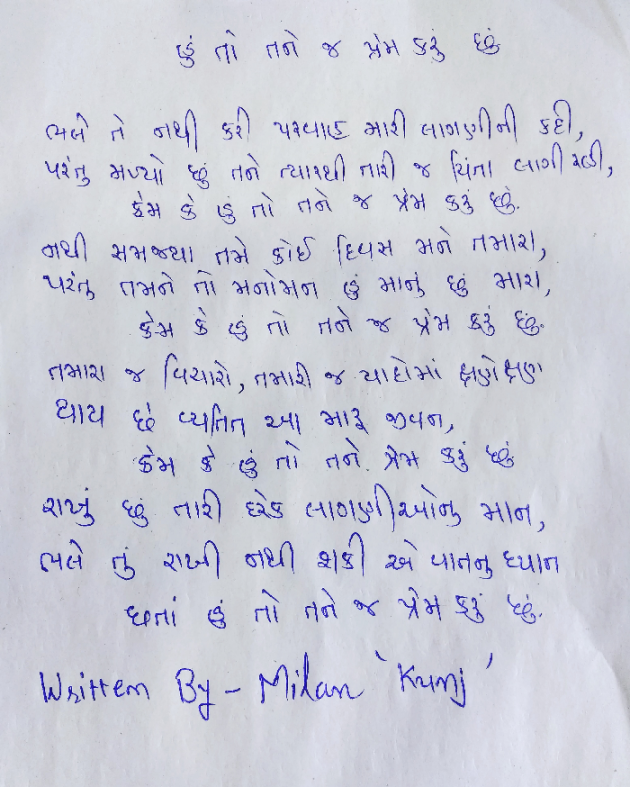 હું તો તને જ પ્રેમ કરું છું
ભલે તે નથી કરી પરવાહ મારી લાગણીની કદી,
પરંતુ મળ્યો છું તને ત્યારથી તારી જ ચિંતા લાગી રહી,
કેમ કે હું તો તને જ પ્રેમ કરું છું.
નથી સમજ્યા તમે કોઈ દિવસ મને તમારા,
પરંતુ તમને તો મનોમન હું માનુ છું મારા,
કેમ કે હું તો તને જ પ્રેમ કરું છું.
તમારા જ વિચારો, તમારી જ યાદોમાં ક્ષણેક્ષણ
થાય છે વ્યતિત આ મારૂ જીવન,
કેમ કે હું તો તને પ્રેમ કરું છું
રાખું છું તારી દરેક લાગણીઓનુ માન,
ભલે તું રાખી નથી શકી એ વાતનુ ધ્યાન
છતાં હું તો તને જ પ્રેમ કરું છું.
Written By - Milan 'Kunj'